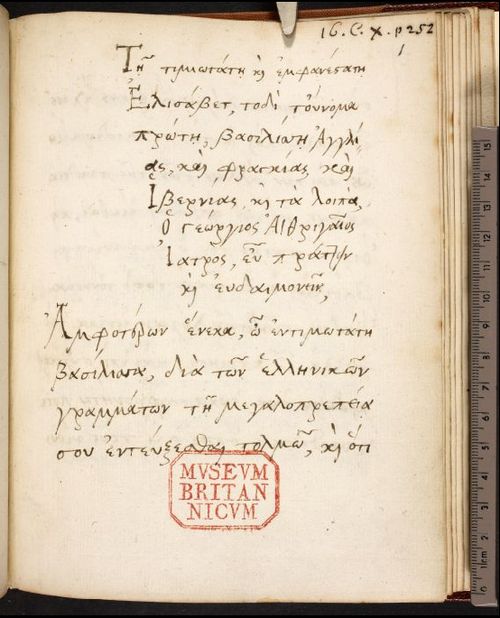 16. C. X. p 252
1
Τῇ τιμιωτάτῃ κὶ ἐμφανεστάτῃ
Ἐλισάβετ, τοδὶ τοὔνομα
πρώτῃ, βασιλίσσῃ Ἀγγλί
ας, καὶ φρασκίας καὶ
Ἰβερνίας, κὶ τὰ λοιπὰ,
Ὁ Γεώργιος Αἰθριγαῖος
Ἰατρὸς, εὖ πράττειν
κὶ εὐδαιμονεῖν,
Ἀμφοτέρων ἕνεκα, ὦ ἐντιμωτάτη
βασίλισσα, διὰ τῶν ἑλληνικῶν
γραμμάτων τῇ μεγαλοπρεπείᾳ
σου ἐντεύξεσθαι τολμῶ, κὶ ὅτι
MVSEVM
BRITAN
NICVM
15
14
13
12
11
10
9
8
7
6
5
4
3
2
1cm
0